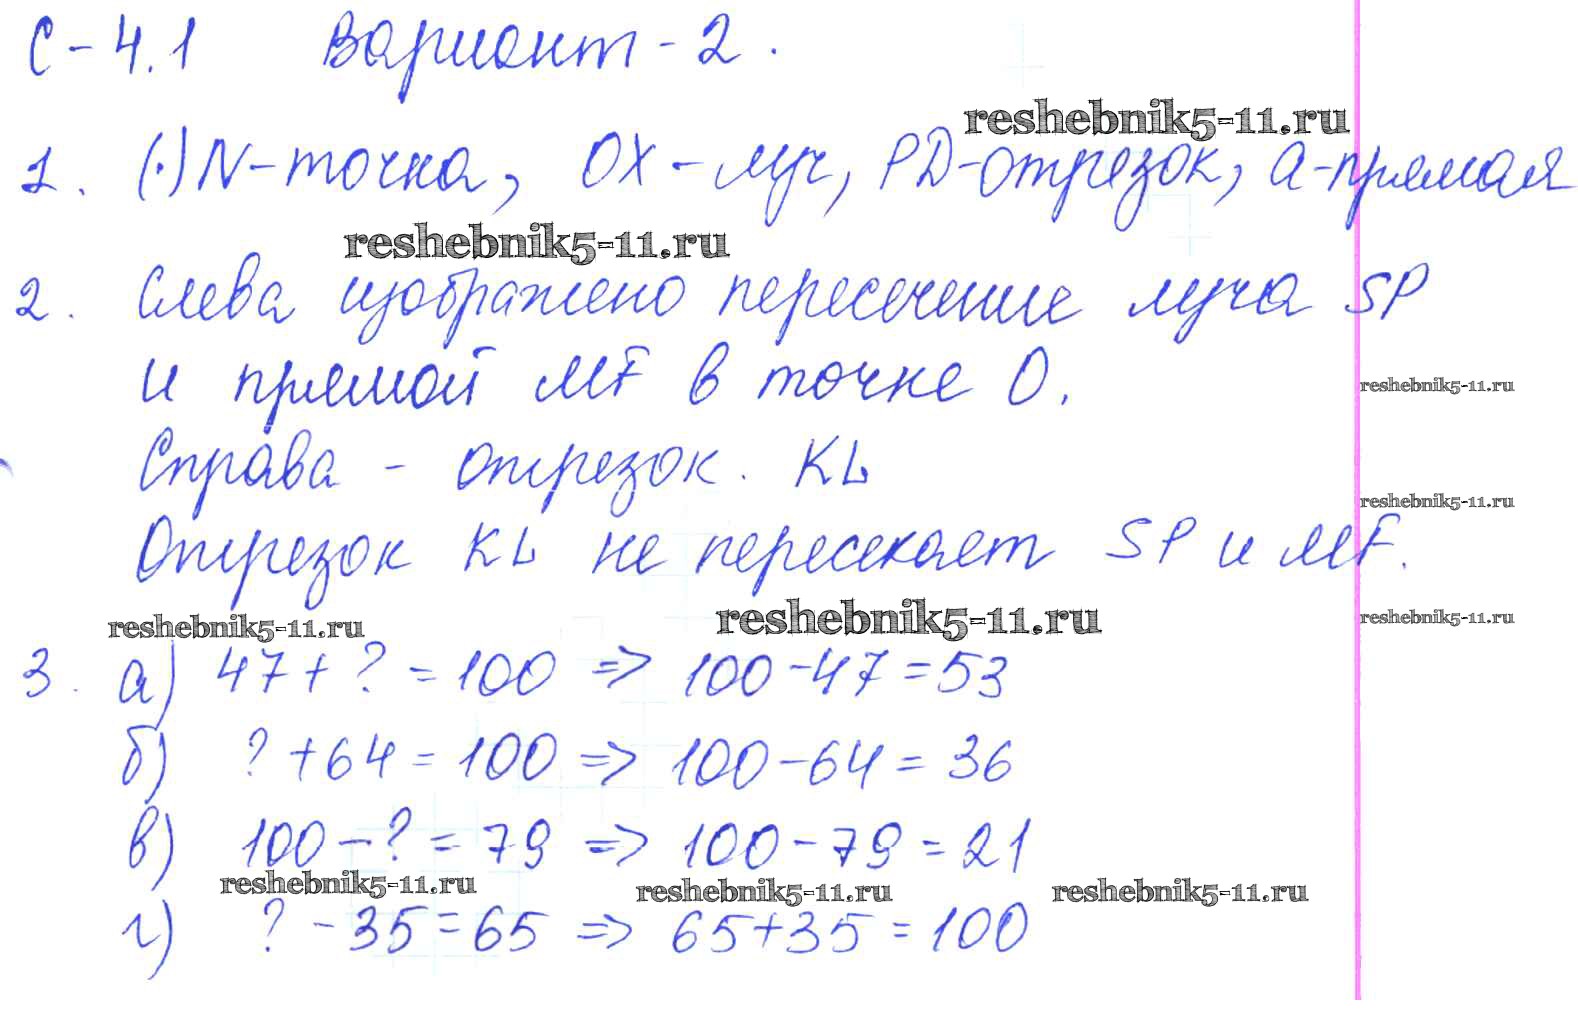 С-4.1 Вариант-2.
reshebnik5-11.ru
1. (·)N-точка, OX-луч, PD-отрезок, a-прямая
reshebnik5-11.ru
2. Слева изображено пересечение луча SP
и прямой MF в точке O.
reshebnik5-11.ru
Справа - отрезок. KL
reshebnik5-11.ru
Отрезок KL не пересекает SP и MF.
reshebnik5-11.ru reshebnik5-11.ru reshebnik5-11.ru
3. а) 47+?=100 => 100-47=53
б) ?+64=100 => 100-64=36
в) 100-?=79 => 100-79=21
reshebnik5-11.ru reshebnik5-11.ru reshebnik5-11.ru
г) ?-35=65 => 65+35=100